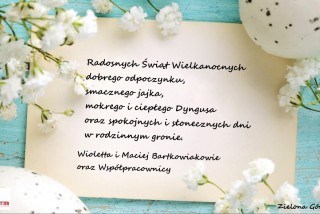 Radosnych Świąt Wielkanocnych
dobrego odpoczynku,
smacznego jajka,
mokrego i ciepłego Dyngusa
oraz spokojnych i słonecznych dni
w rodzinnym gronie.
Wioletta i Maciej Bartkowiakowie
oraz Współpracownicy
Zielona